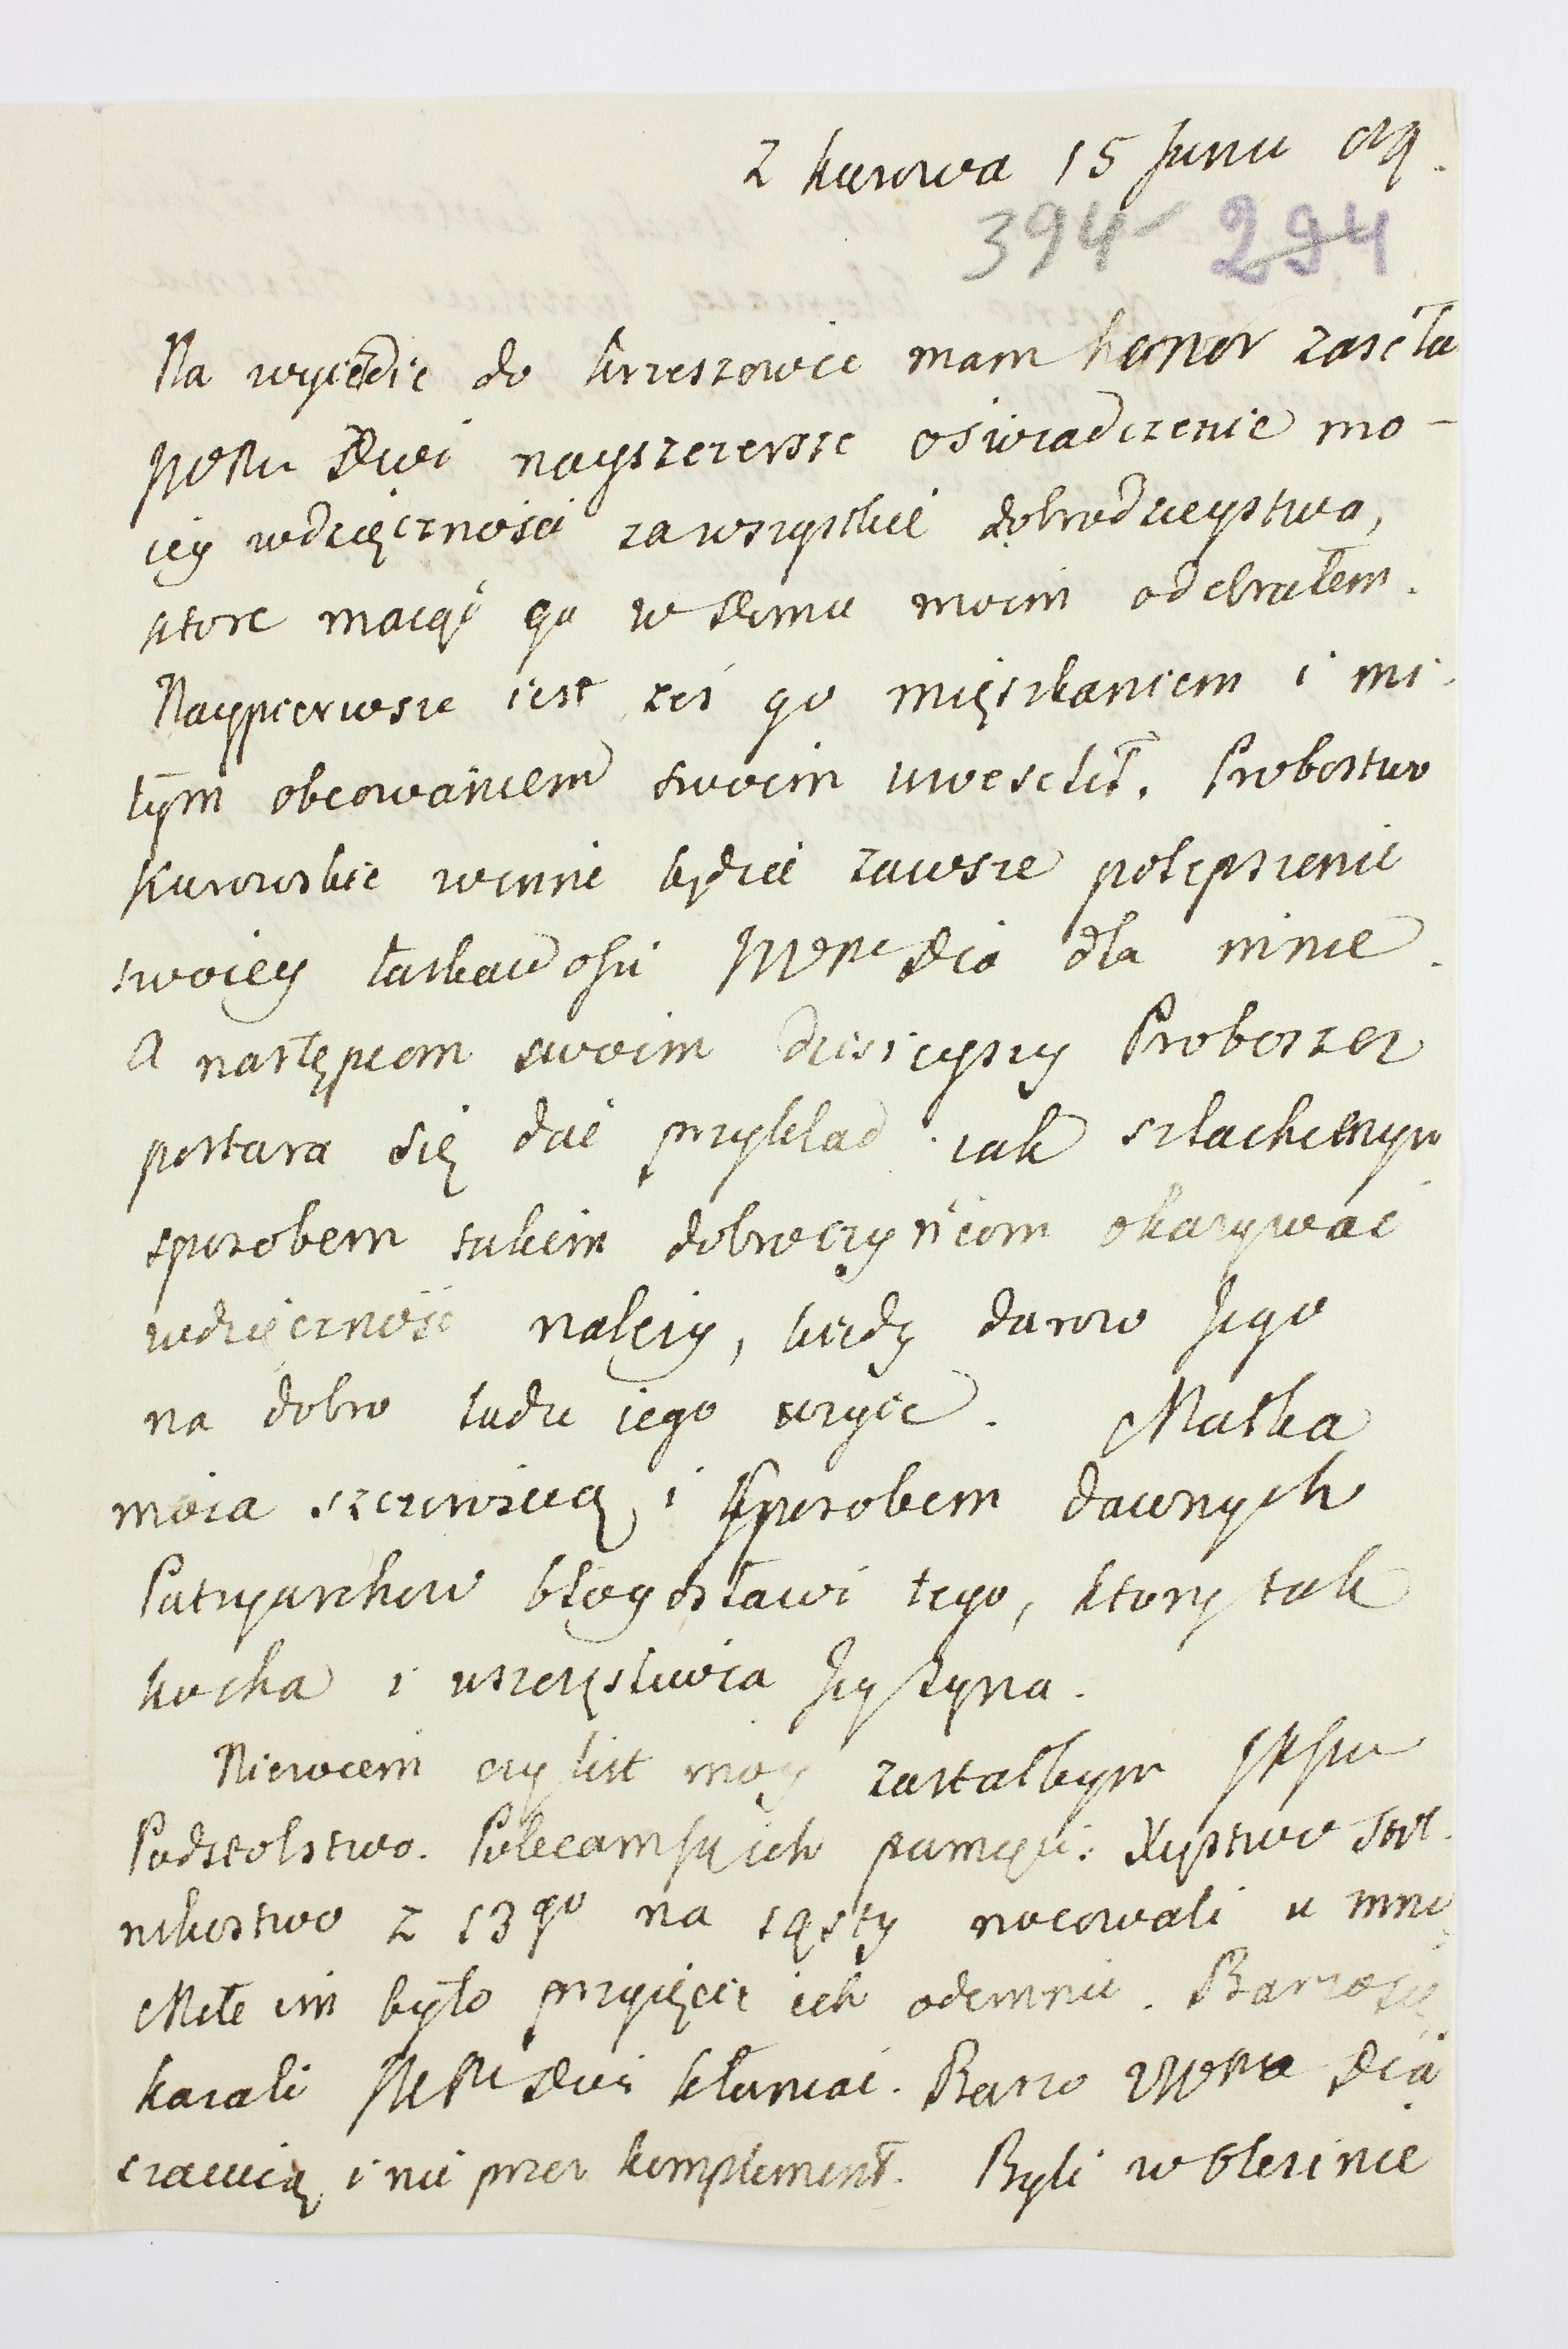 z Kurowa 15 Junii
394 294
Na wyiezdzie do Krzeszowic mam honor zasełać
JWPanu Dwi nayszczersze oświadczenie mo-
iey wdzięczności za wszystkie dobrodzieystwa,
ktore maiąc go w Domu moim odebrałem.
Naypierwsze iest żeś go mięszkaniem i mi-
łym obcowaniem swoim uweselił. Probostwo
Kurowskie winne będzie zawsze polepszenie
swoiey łaskawości JWPana Dzia dla mnie.
A następcom swoim dzisieyszy Proboszcz
postara się dać przykład iak szlachetnym
sposobem takim dobroczyńcom okazywać
wdzięczność należy, kiedy darow Jego
na dobro ludu iego użyie. Matka
moia szczerością i sposobem dawnych
Patryarchow błogosławi tego, ktory tak
kocha i uszczęśliwia Jey Syna.
Niewiem czy list moy zastałbym
Podstolstwo. Polecam się ich pamięci. Xięstwo Stol-
nikostwo z 13go na 14sty nocowali u mnie
Miłe im było przyięcie ich odemnie. Barzo się
kazali JWPanu Dwi kłaniać. Barzo JWPana Dzia
szacuią i nie przez komplement. Byli w Olesinie